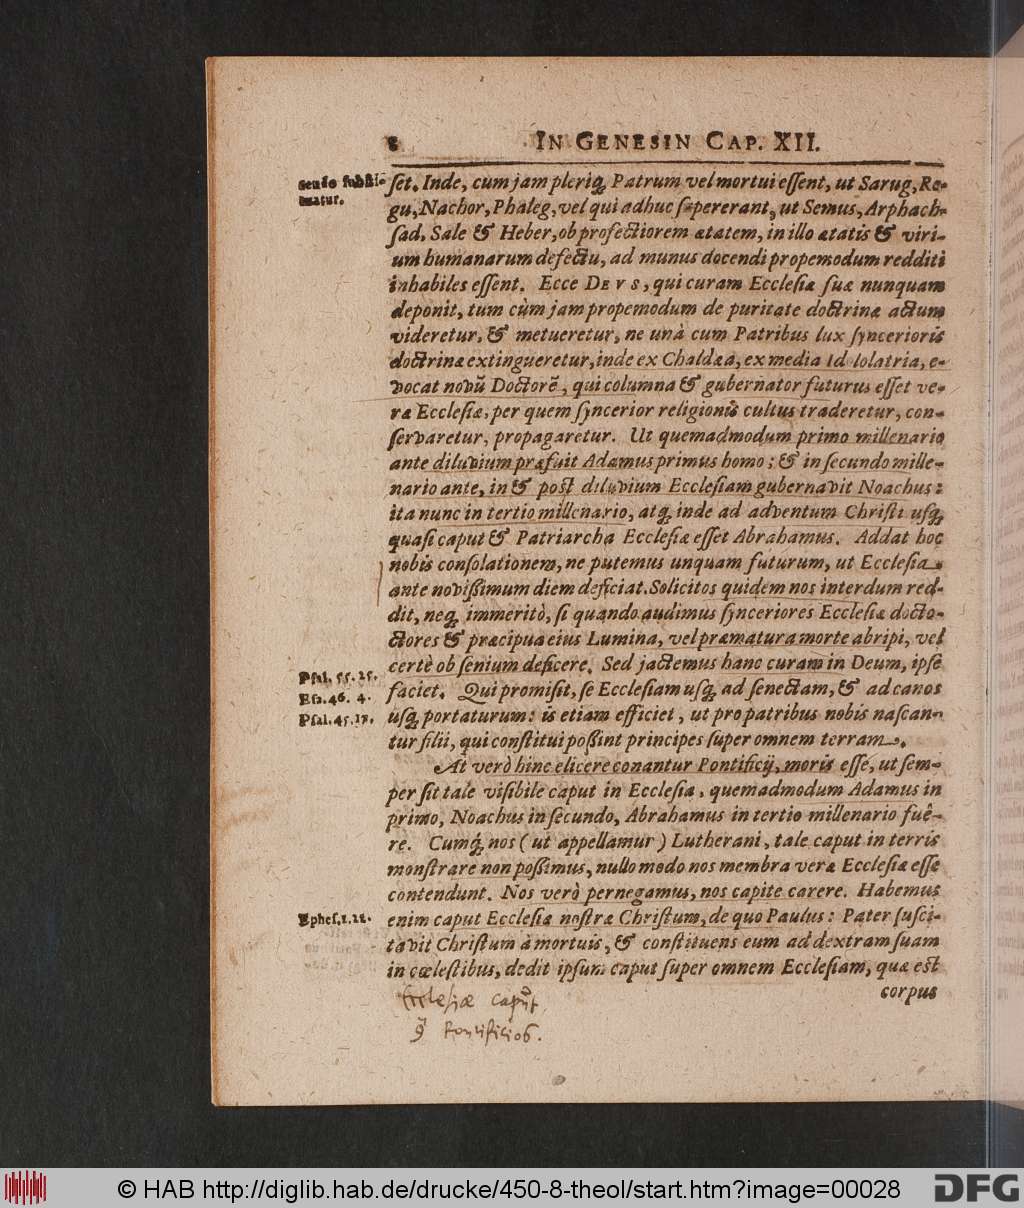 8 IN GENESIN CAP. XII.
ſet. Inde, cum jam pleriq; Patrum vel mortui eſſent, ut Sarug, Re-
gu, Nachor, Phaleg, vel qui adhuc ſupererant, ut Semus, Arphach-
ſad, Sale & Heber, ob profectiorem ætatem, in illo ætatis & viri-
um humanarum defectu, ad munus docendi propemodum redditi
inhabiles eſſent. Ecce DEVS, qui curam Eccleſiæ ſuæ nunquam
deponit, tum cùm jam propemodum de puritate doctrinæ actum
videretur, & metueretur, ne unà cum Patribus lux ſyncerioris
doctrinæ extingueretur, inde ex Chaldæa, ex media Idololatria, e-
vocat novũ Doctorẽ, qui columna & gubernator futurus eſſet ve-
ræ Eccleſiæ, per quem ſyncerior religionis cultus traderetur, con-
ſervaretur, propagaretur. Ut quemadmodum primo millenario
ante diluvium præfuit Adamus primus homo; & in ſecundo mille-
nario ante, in & poſt diluvium Eccleſiam gubernavit Noachus:
ita nunc in tertio millenario, atq; inde ad adventum Chriſti uſq;
quaſi caput & Patriarcha Eccleſiæ eſſet Abrahamus. Addat hoc
nobis conſolationem, ne putemus unquam futurum, ut Eccleſia
ante noviſſimum diem deficiat. Solicitos quidem nos interdum red-
dit, neq; immeritò, ſi quando audimus ſynceriores Eccleſiæ docto-
ctores & præcipua ejus Lumina, vel præmatura morte abripi, vel
certè ob ſenium deficere. Sed jactemus hanc curam in Deum, ipſe
faciet. Qui promiſit, ſe Eccleſiam uſq; ad ſenectam, & ad canos
uſq; portaturum: is etiam efficiet, ut pro patribus nobis naſcan-
tur filii, qui conſtitui poſſint principes ſuper omnem terram.
At verò hinc elicere conantur Pontificij, moris eſſe, ut ſem-
per ſit tale viſibile caput in Eccleſia, quemadmodum Adamus in
primo, Noachus in ſecundo, Abrahamus in tertio millenario fuê-
re. Cumq; nos (ut appellamur) Lutherani, tale caput in terris
monſtrare non poſſimus, nullo modo nos membra veræ Eccleſiæ eſſe
contendunt. Nos verò pernegamus, nos capite carere. Habemus
enim caput Eccleſiæ noſtræ Chriſtum, de quo Paulus: Pater ſuſci-
tavit Chriſtum à mortuis, & conſtituens eum ad dextram ſuam
in cœleſtibus, dedit ipſum caput ſuper omnem Eccleſiam, quæ eſt
corpus
Pſal. 55. 25.
Eſa. 46. 4.
Pſal. 45. 17.
Epheſ. 1. 22.
Eccleſiæ caput
Pontificios.
© HAB http://diglib.hab.de/drucke/450-8-theol/start.htm?image=00028
DFG